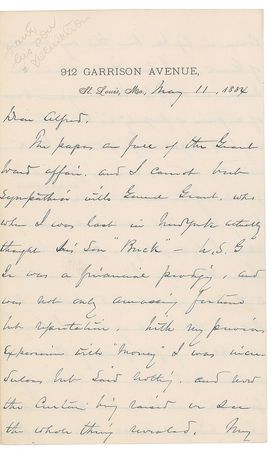 912 GARRISON AVENUE,
St. Louis, Mo., May 11, 1884
Dear Alfred.
The papers are full of the Grant
Ward affair, and I cannot but
sympathise with Genl Grant, who
when I was last in New York actually
thought his Son "Buck" - U.S.G
Jr was a financial prodigy, and
was not only amassing fortune
but reputation. With my previous
Experience with "Money" I was incre-
dulous but said nothing, and now
the Curtain being raised we see
the whole thing revealed. My